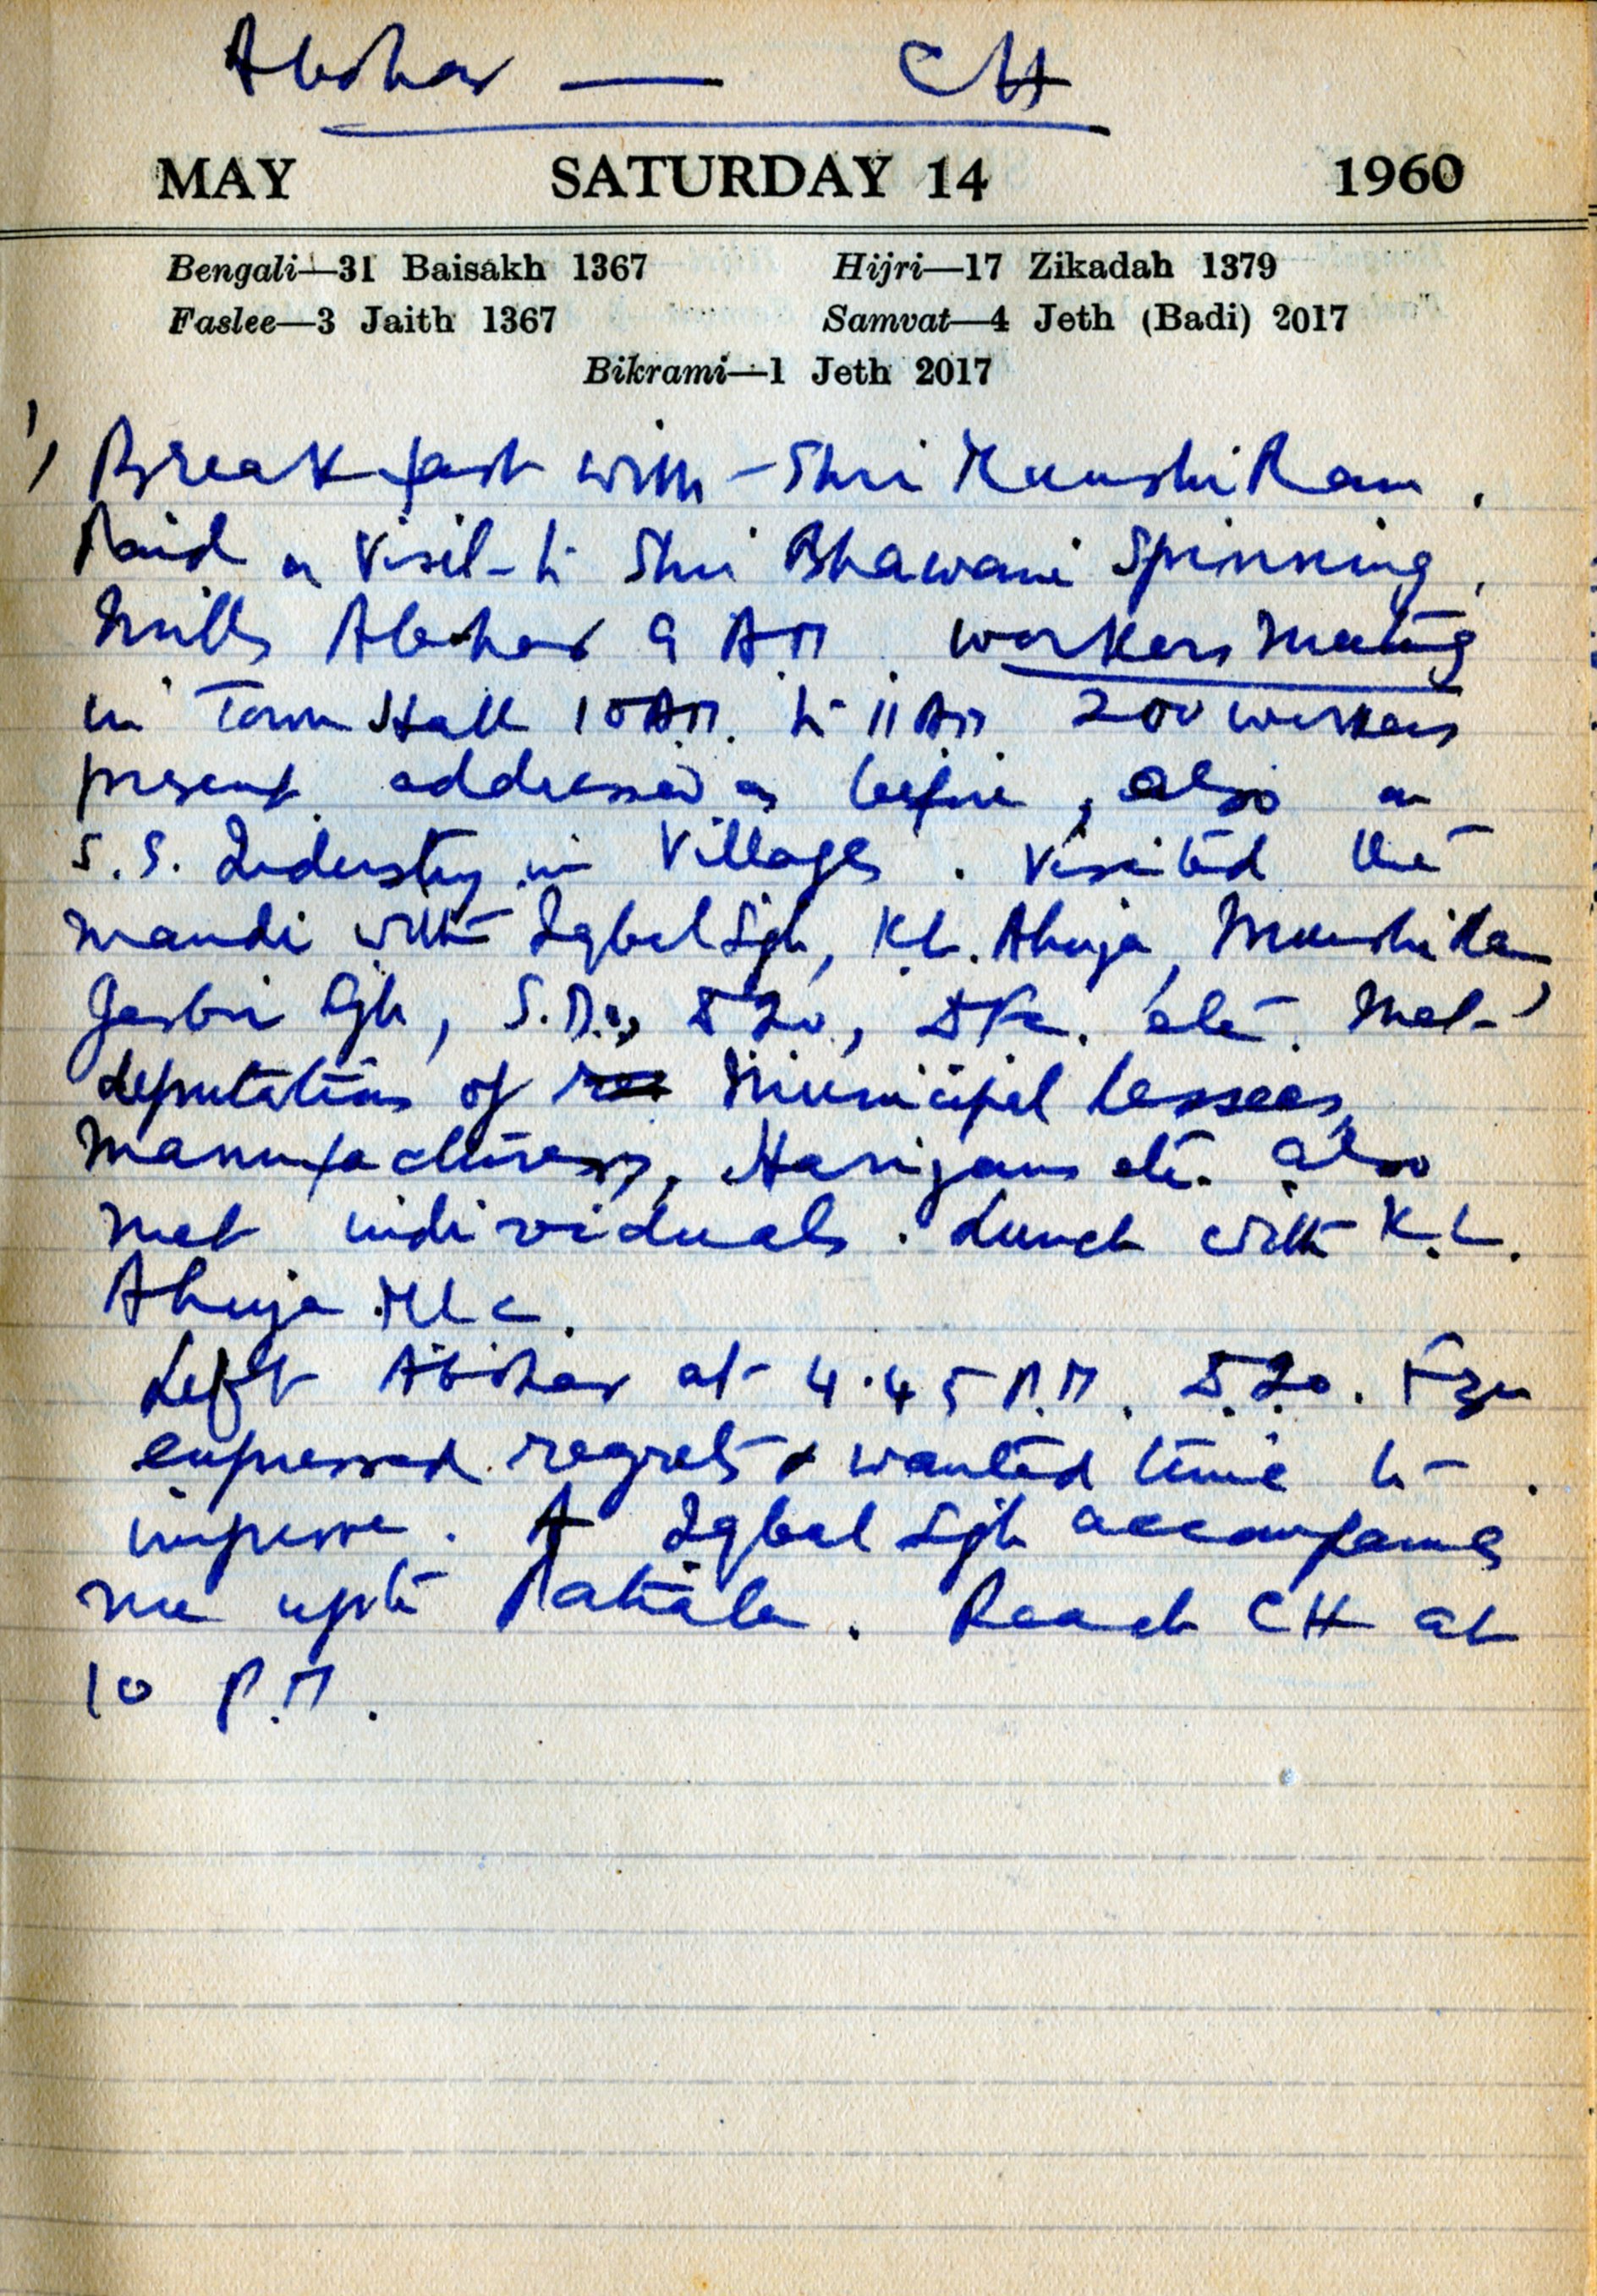 Abohar — CH
MAY SATURDAY 14 1960
Bengali—31 Baisakh 1367 Hijri—17 Zikadah 1379
Faslee—3 Jaith 1367 Samvat—4 Jeth (Badi) 2017
Bikrami—1 Jeth 2017
1) Breakfast with - Shri Munshi Ram.
Paid a visit to Shri Bhawani Spinning,
Mills Abohar 9 AM. workers meeting
in Town Hall 10 AM. to 11 AM 200 workers
present addressed as before, also on
S.S. Industry in Villages. Visited the
mandi with Iqbal Sgh, K.L. Ahuja, Munshi Ram
S.D.O., DIO, etc. Met
deputations of Municipal Lessees,
Manufacturers, Harijans etc. also
met individuals. Lunch with K.L.
Ahuja MLC.
Left Abohar at 4.45 P.M. D.I.O. Fzr
expressed regrets & wanted time to
improve. Iqbal Sgh accompanies
me upto Patiala. Reach CH at
10 P.M.